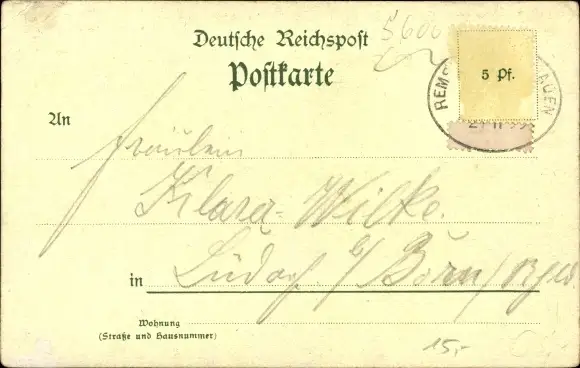 5600
Deutsche Reichspost
Postkarte
5 Pf.
REMS AUEN
An
Fräulein
Klara Wilke.
in Lüdorf b/ Born /
Wohnung
(Straße und Hausnummer)
15,-